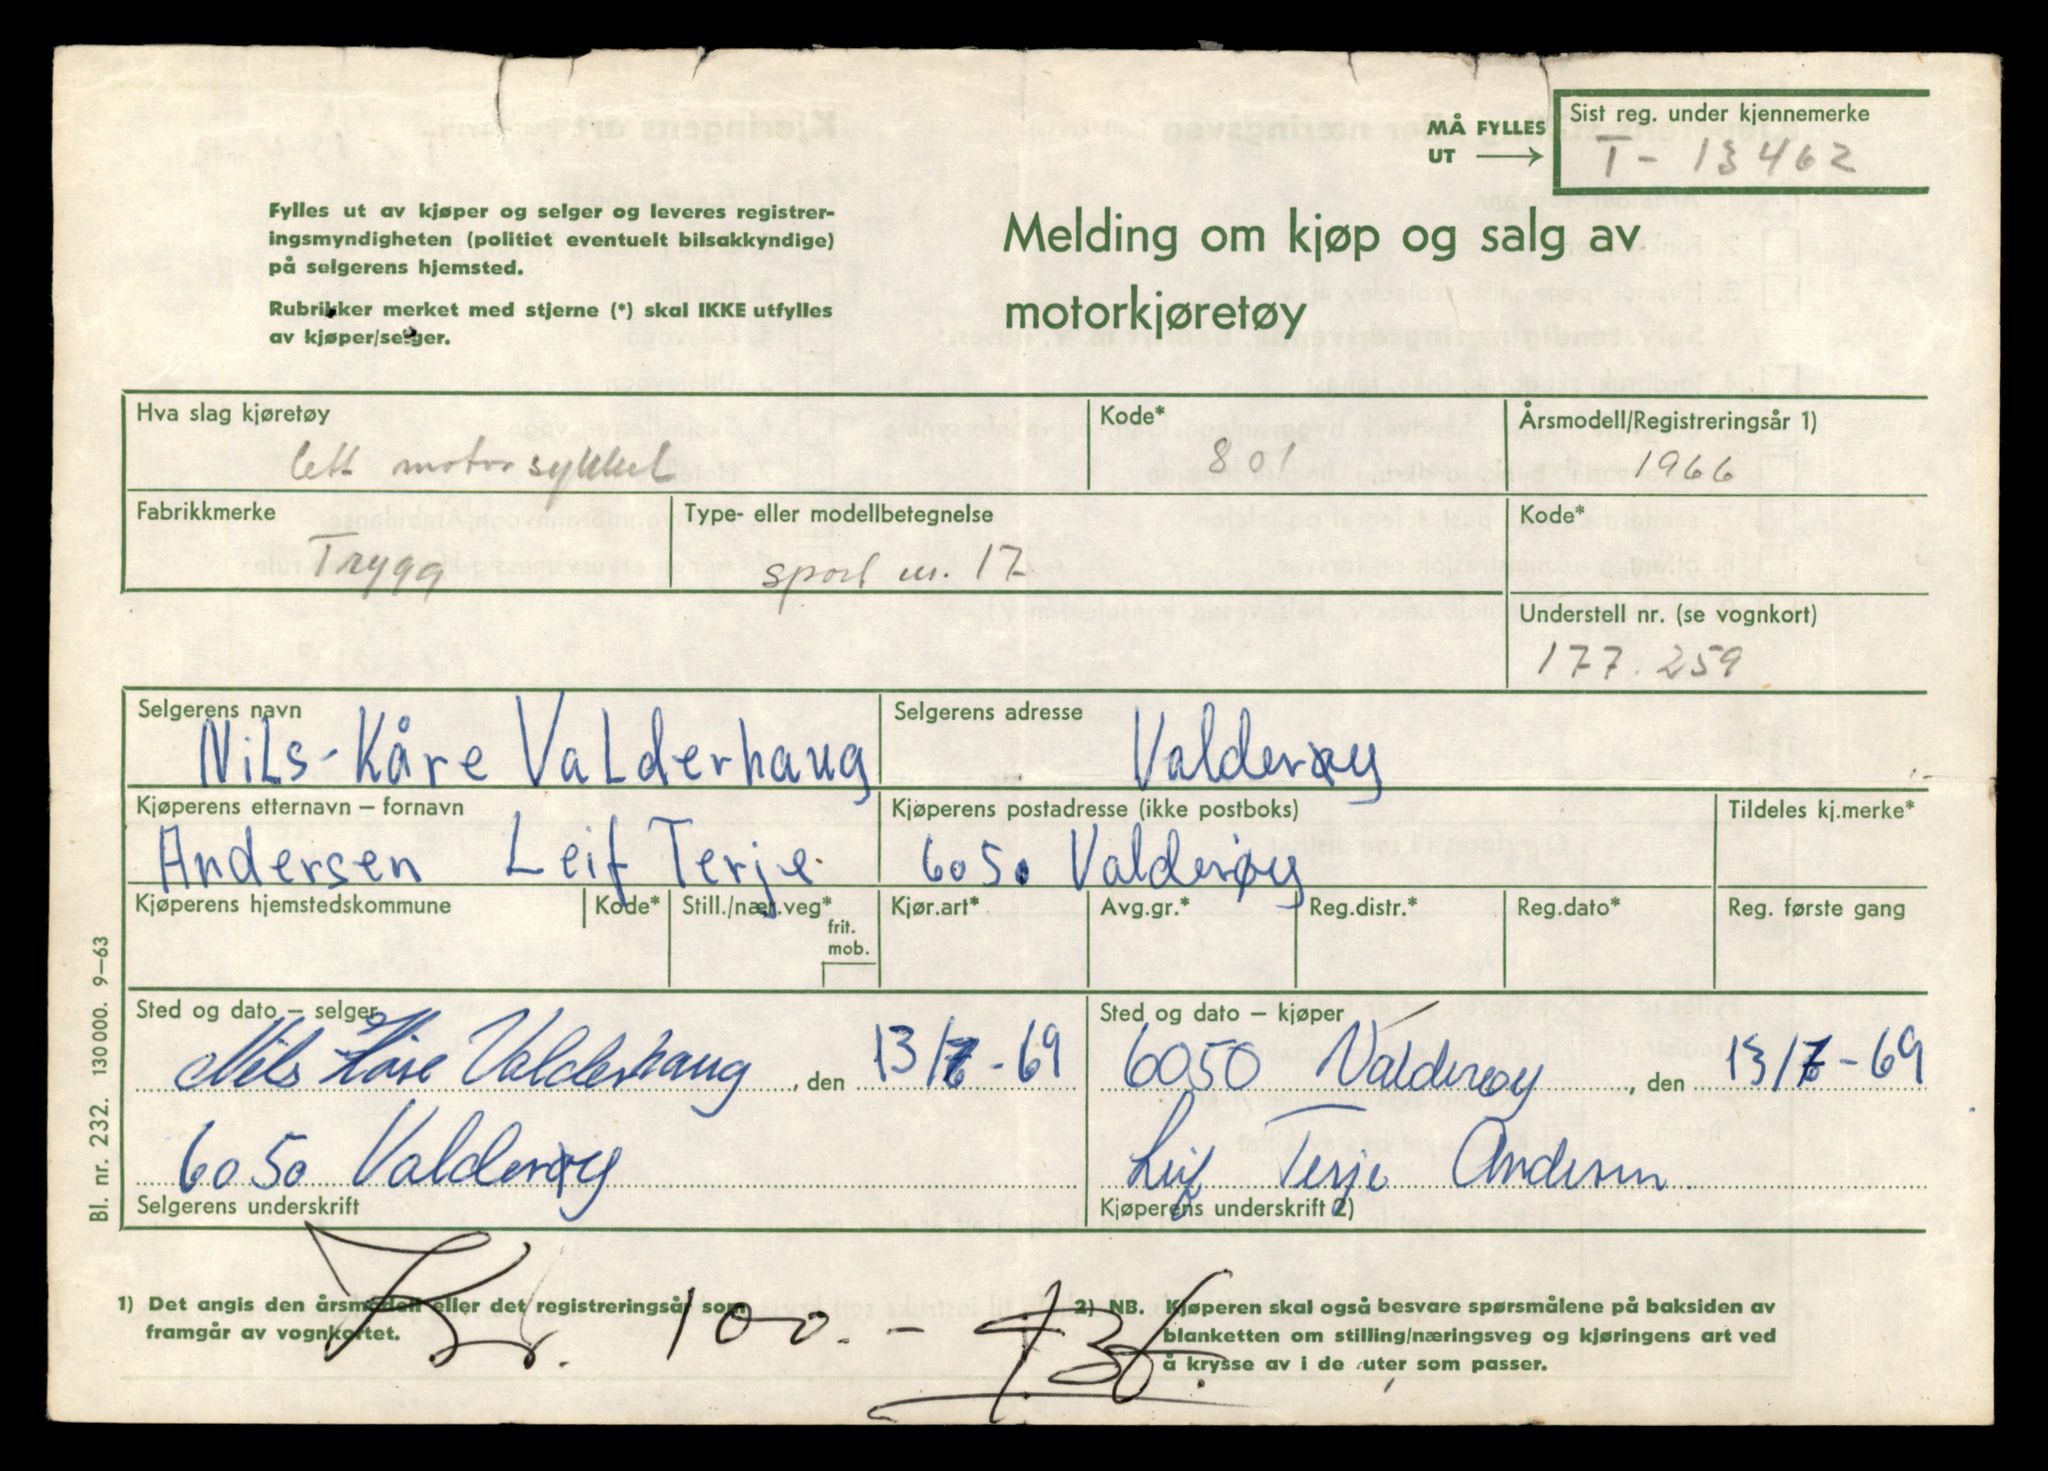 MÅ FYLLES
UT →
Sist reg. under kjennemerke
T - 13462
Fylles ut av kjøper og selger og leveres registrer-
ingsmyndigheten (politiet eventuelt bilsakkyndige)
på selgerens hjemsted.
Rubrikker merket med stjerne (*) skal IKKE utfylles
av kjøper/selger.
Melding om kjøp og salg av
motorkjøretøy
Hva slag kjøretøy
lett motorsykkel
Kode*
801
Årsmodell/Registreringsår 1)
1966
Fabrikkmerke
Trygg
Type- eller modellbetegnelse
sport m. 17
Kode*
Understell nr. (se vognkort)
177.259
Selgerens navn
Nils-Kåre Valderhaug
Selgerens adresse
Valderøy
Kjøperens etternavn – fornavn
Andersen Leif Terje
Kjøperens postadresse (ikke postboks)
6050 Valderøy
Tildeles kj.merke*
Kjøperens hjemstedskommune
Kode*
Still./nær.veg*
frit.
mob.
Kjør.art*
Avg.gr.*
Reg.distr.*
Reg.dato*
Reg. første gang
Sted og dato – selger
Nils Kåre Valderhaug, den 13/7-69
6050 Valderøy
Selgerens underskrift
Sted og dato – kjøper
6050 Valderøy, den 13/7-69
Leif Terje Andersen
Kjøperens underskrift 2)
Bl. nr. 232. 130000. 9–63
Kr. 100.-
1) Det angis den årsmodell eller det registreringsår som
framgår av vognkortet.
2) NB. Kjøperen skal også besvare spørsmålene på baksiden av
blanketten om stilling/næringsveg og kjøringens art ved
å krysse av i de ruter som passer.